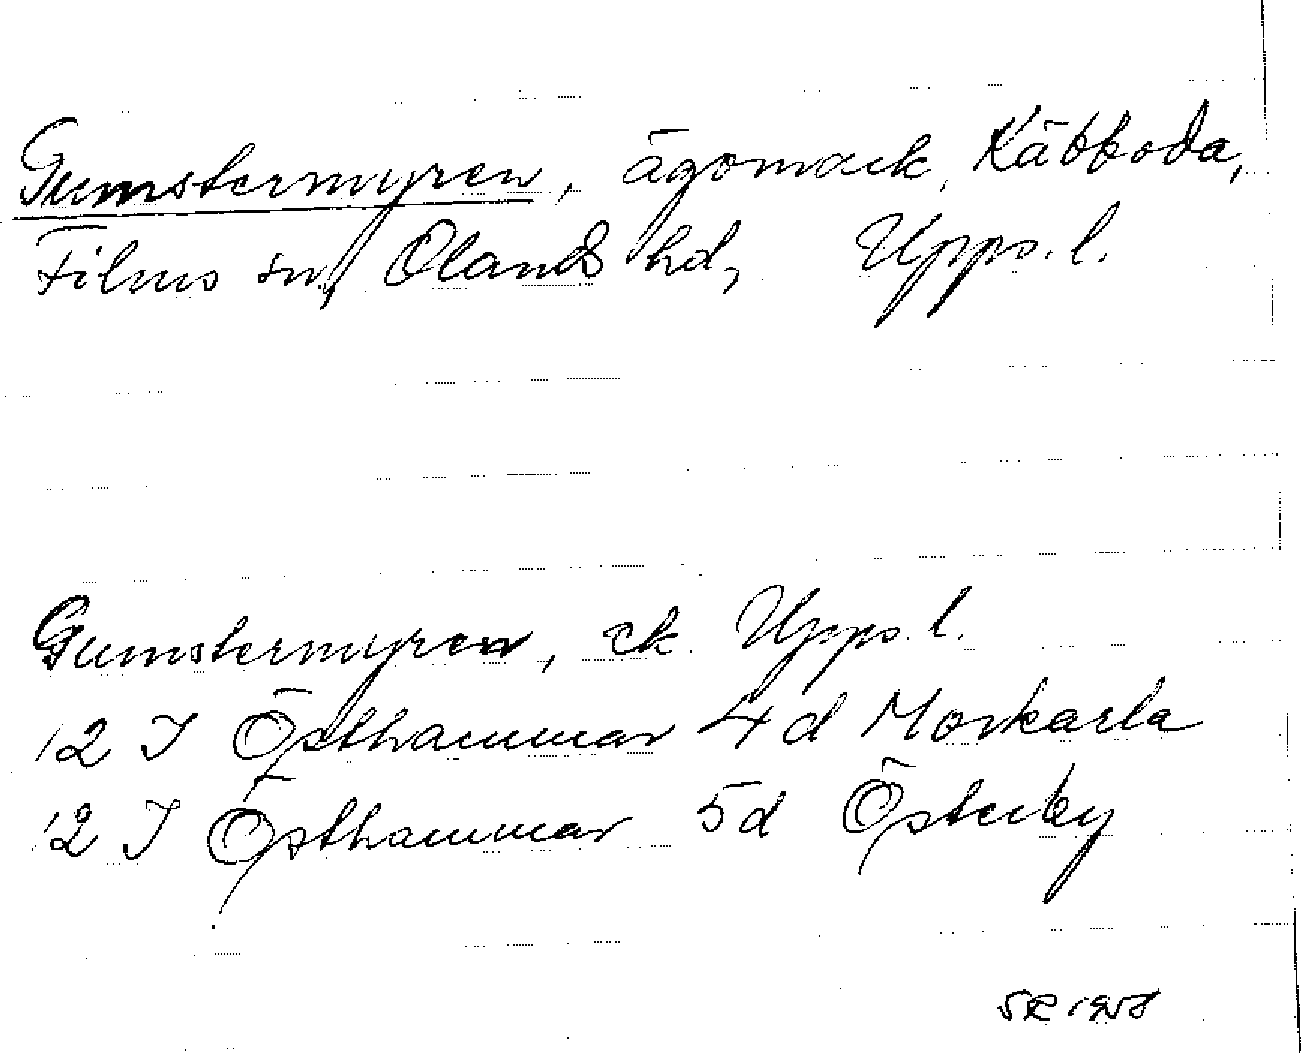 Gumstermyren, ägomark, Käbboda,
Films sn, Olands hd, Upps. l.
Gumstermyren, ek. Upps. l.
12 I Östhammar 4d Morkarla
12 I Östhammar 5d Österby
SR 1958